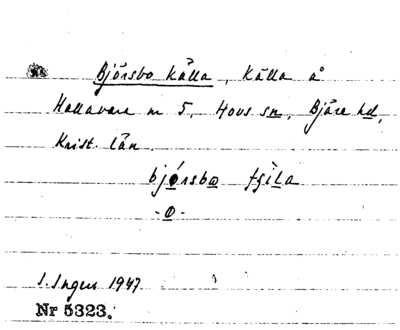 Björsbo källa, Källa å
Hallavara nr 5, Hovs sn, Bjäre hd,
Krist. län.
bjó̱rsbo̱ tʃìla
-o̱-
S. Ingers 1947
Nr 5323.